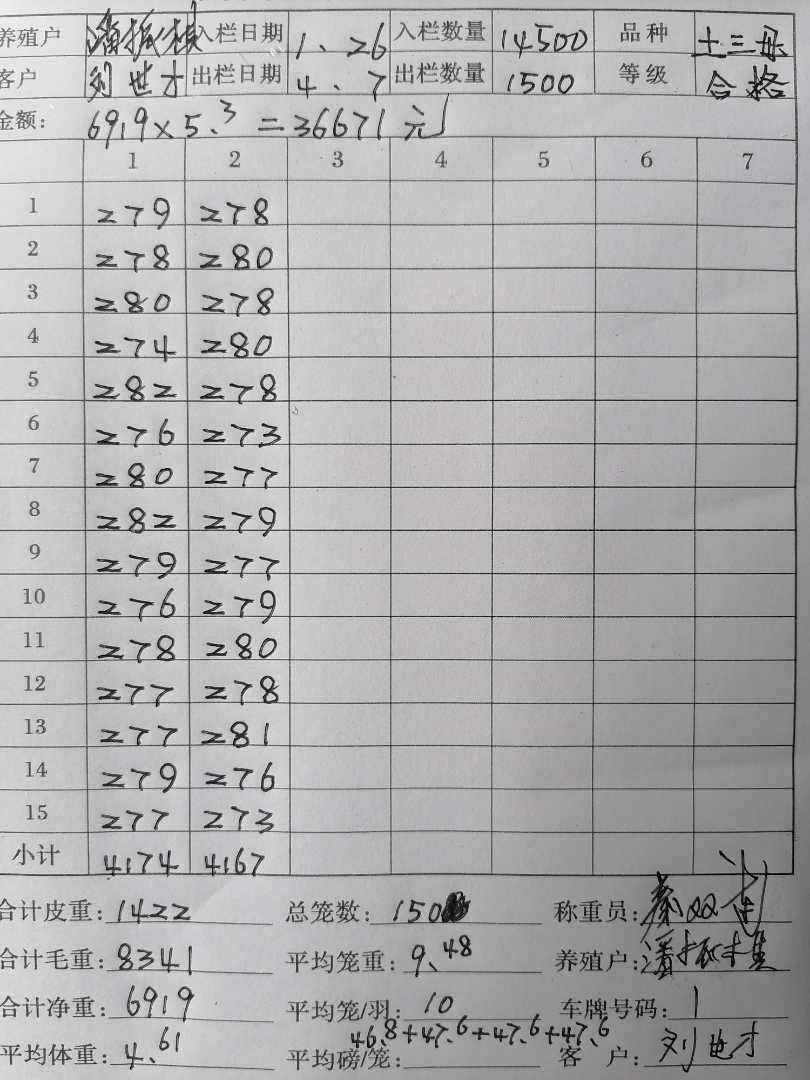 养殖户 潘振模 入栏日期 1.26 入栏数量 14500 品种 土三母
客户 刘世才 出栏日期 4.7 出栏数量 1500 等级 合格
金额: 6919×5.3=36671元
1 2 3 4 5 6 7
1 279 278
2 278 280
3 280 278
4 274 280
5 282 278
6 276 273
7 280 277
8 282 279
9 279 277
10 276 279
11 278 280
12 277 278
13 277 281
14 279 276
15 277 273
小计 4174 4167
合计皮重: 1422 总笼数: 150 称重员:
合计毛重: 8341 平均笼重: 9.48 养殖户:
合计净重: 6919 平均笼/羽: 10 车牌号码: 1
46.8+47.6+47.6+47.6
平均体重: 4.61 平均磅/笼: 客户: 刘世才